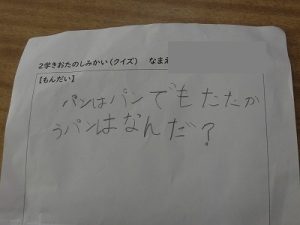 2学きおたのしみかい(クイズ) なまえ
【もんだい】
パンはパンでもたたか
うパンはなんだ?